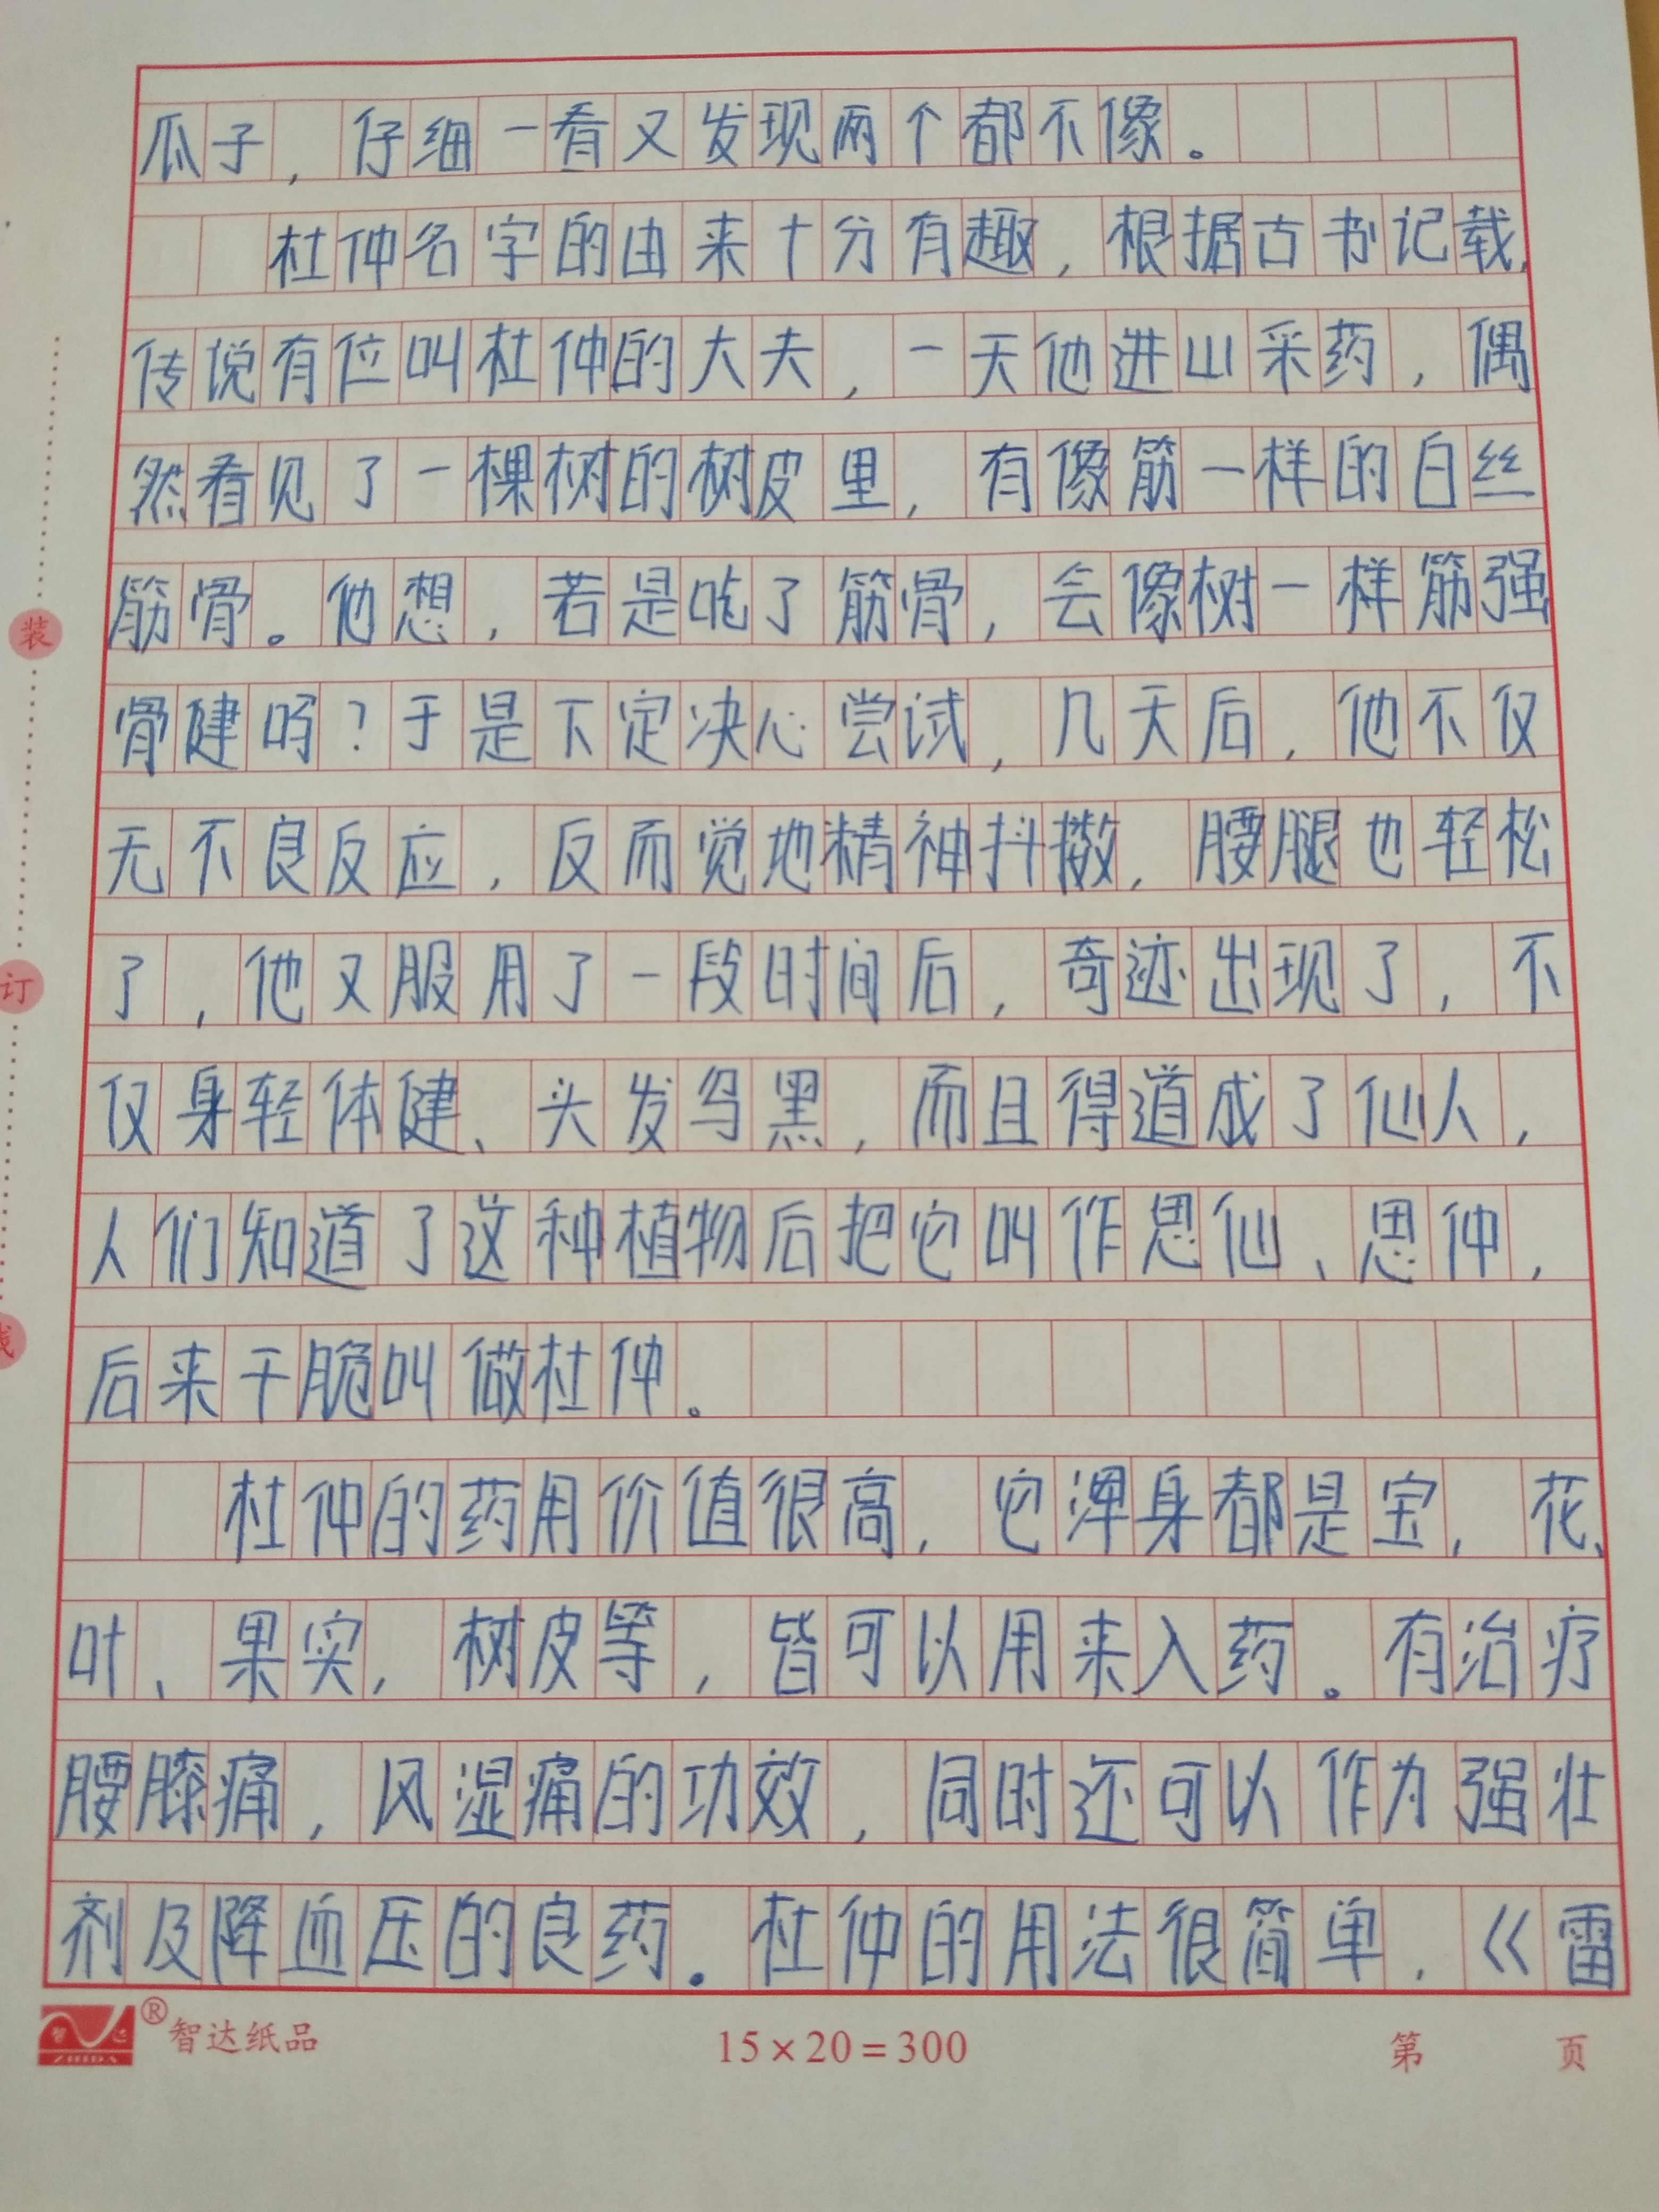 瓜子，仔细一看又发现两个都不像。
杜仲名字的由来十分有趣，根据古书记载，
传说有位叫杜仲的大夫，一天他进山采药，偶
然看见了一棵树的树皮里，有像筋一样的白丝
筋骨。他想，若是吃了筋骨，会像树一样筋强
骨健吗？于是下定决心尝试，几天后，他不仅
无不良反应，反而觉地精神抖擞，腰腿也轻松
了，他又服用了一段时间后，奇迹出现了，不
仅身轻体健、头发乌黑，而且得道成了仙人，
人们知道了这种植物后把它叫作思仙、思仲，
后来干脆叫做杜仲。
杜仲的药用价值很高，它浑身都是宝，花、
叶、果实，树皮等，皆可以用来入药。有治疗
腰膝痛，风湿痛的功效，同时还可以作为强壮
剂及降血压的良药。杜仲的用法很简单，《雷
装
订
线
智达
ZHIDA
®智达纸品
15×20=300
第 页